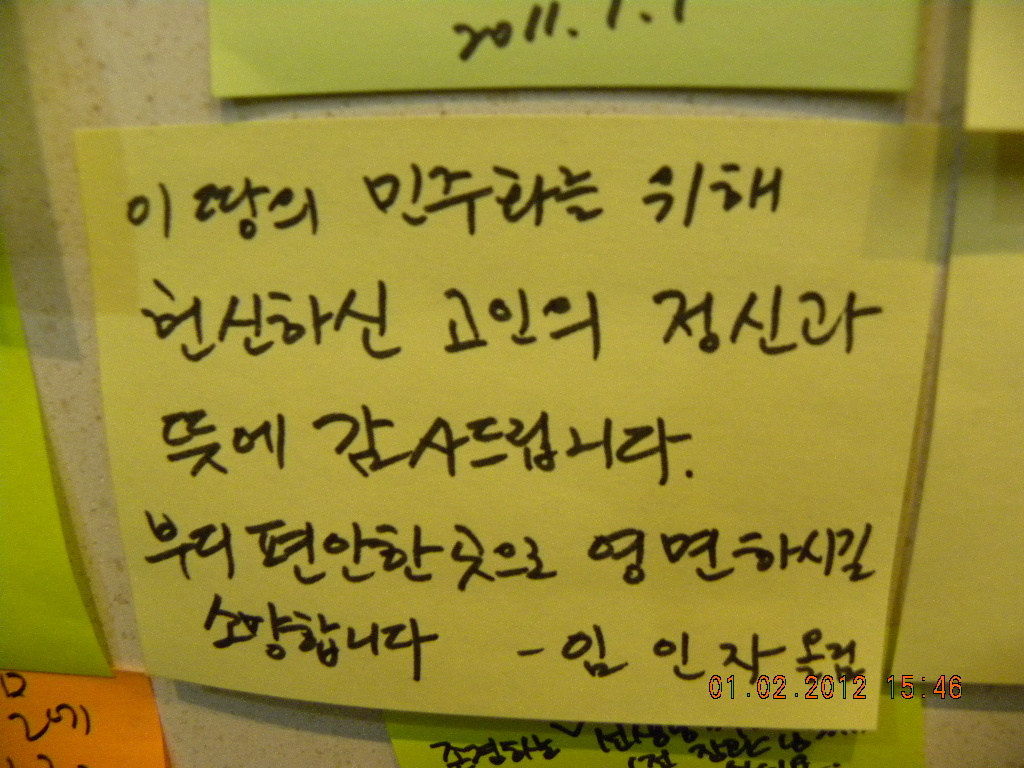 2011.1.1
이 땅의 민주화는 위해
헌신하신 고인의 정신과
뜻에 감사드립니다.
부디 편안한 곳으로 영면하시길
소망합니다 - 임 인 자 올림
01.02.2012 15:46
존경하는